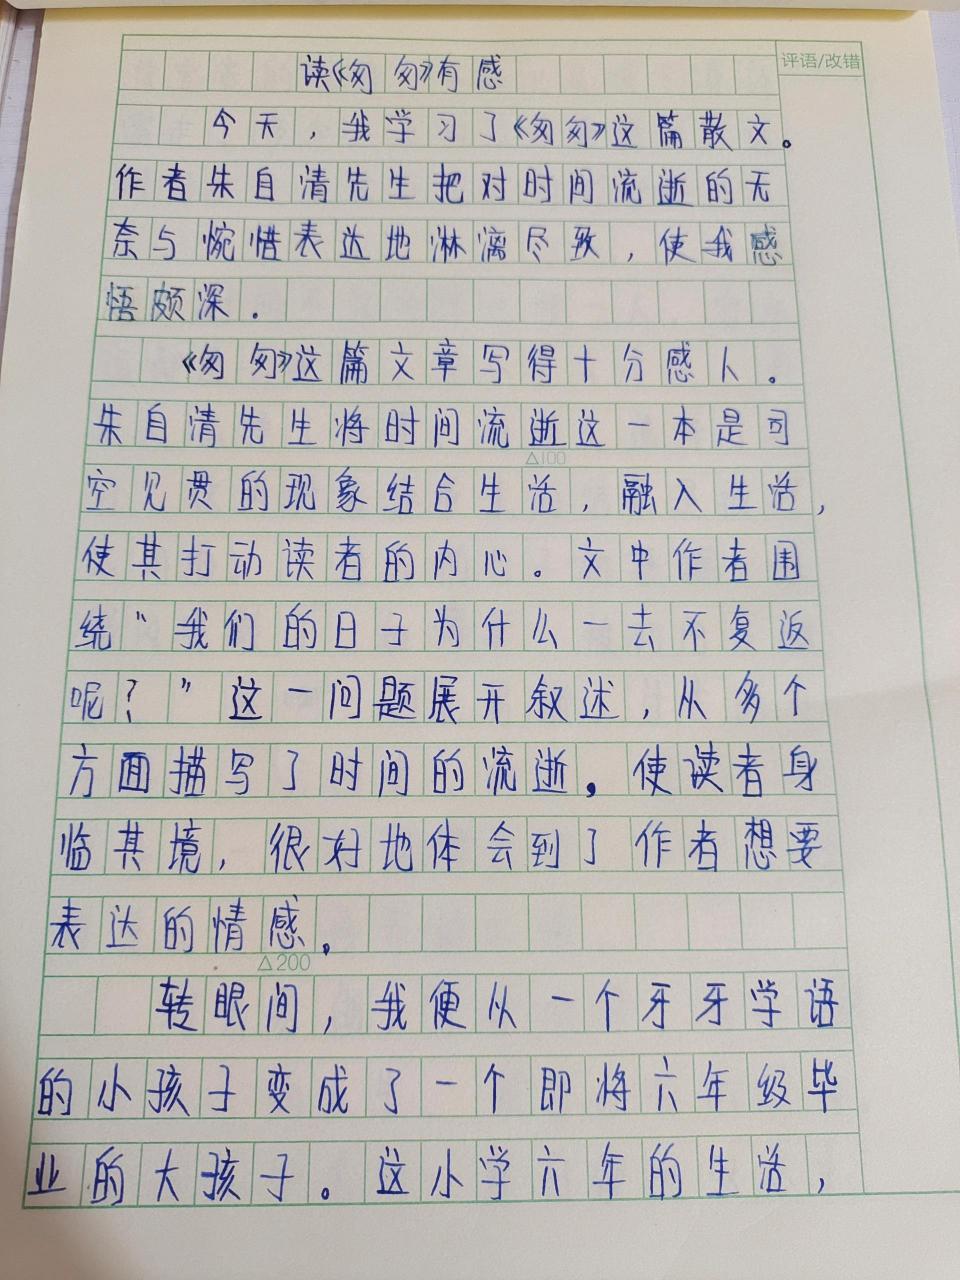 评语/改错
读《匆匆》有感
今天，我学习了《匆匆》这篇散文。
作者朱自清先生把对时间流逝的无
奈与惋惜表达地淋漓尽致，使我感
悟颇深．
《匆匆》这篇文章写得十分感人。
朱自清先生将时间流逝这一本是司
△100
空见贯的现象结合生活，融入生活，
使其打动读者的内心。文中作者围
绕"我们的日子为什么一去不复返
呢？"这一问题展开叙述，从多个
方面描写了时间的流逝，使读者身
临其境，很好地体会到了作者想要
表达的情感．
△200
转眼间，我便从一个牙牙学语
的小孩子变成了一个即将六年级毕
业的大孩子。这小学六年的生活，